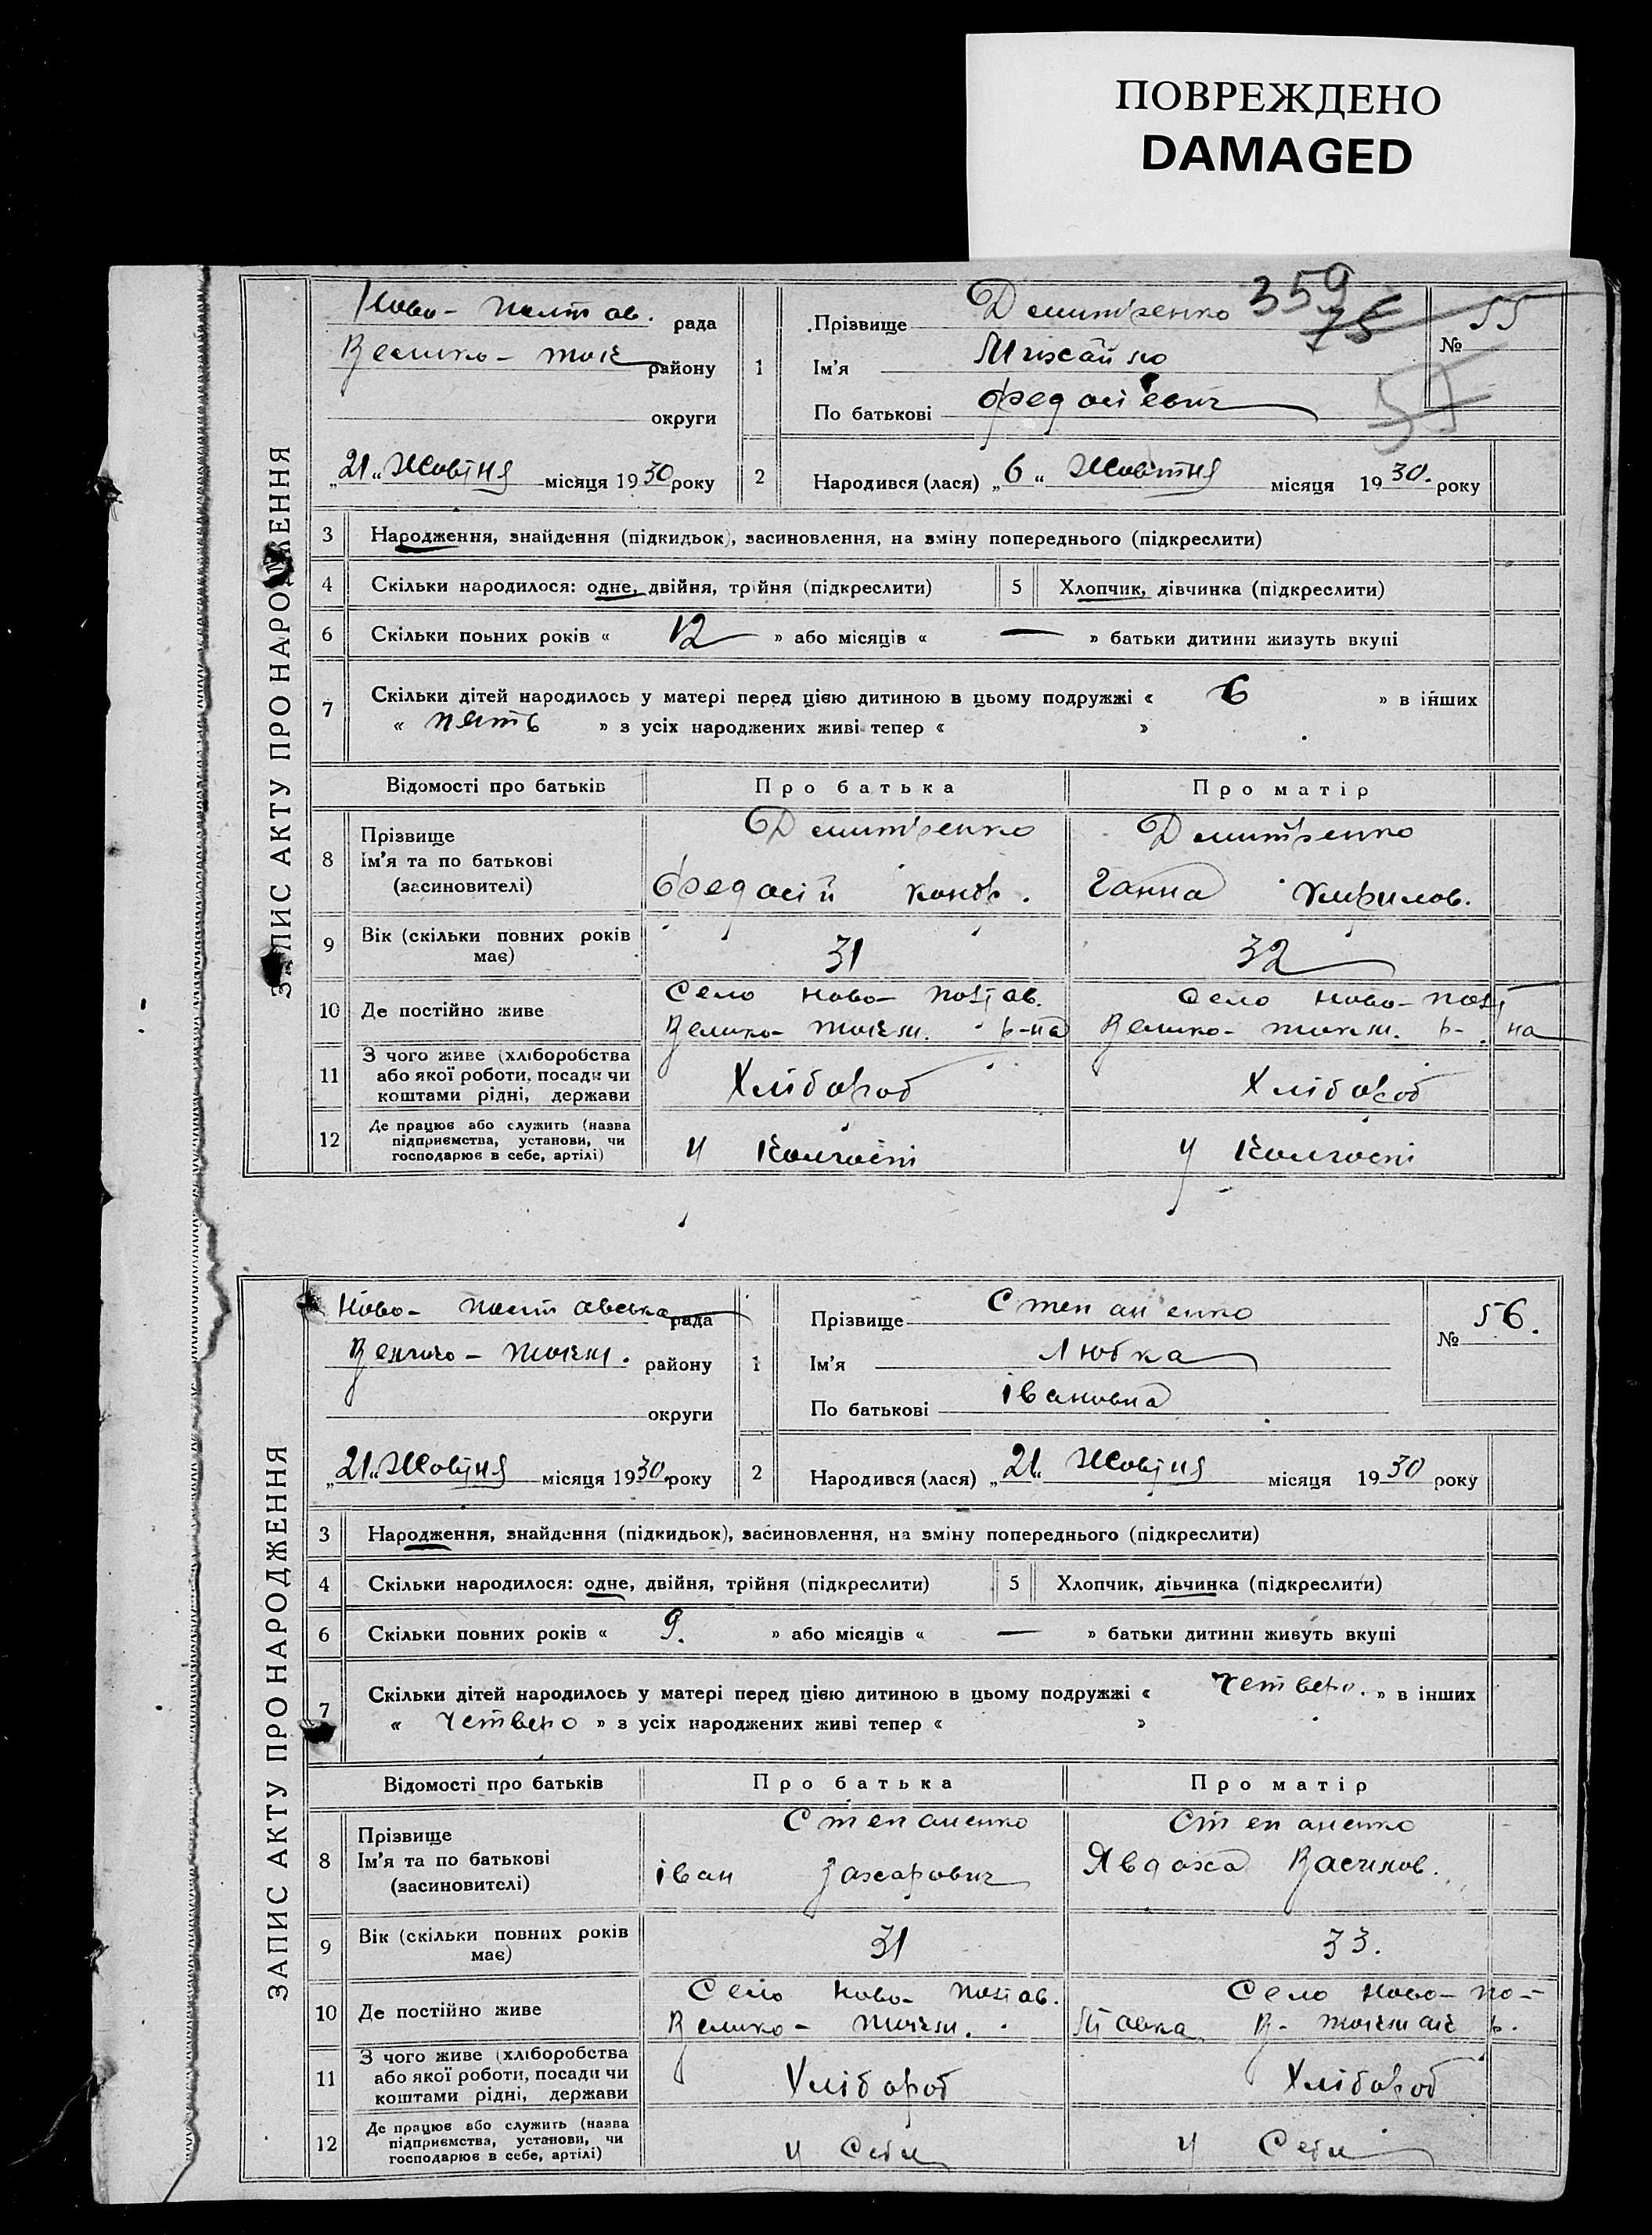 ПОВРЕЖДЕНО
DAMAGED
ЗАПИС АКТУ ПРО НАРОДЖЕННЯ
Ново- Полтав. рада
Велико- ток району
округи
„21“ Жовтня місяця 1930 року
1
Прізвище Дмитренко
359
75
Ім'я Михайло
По батькові Федосіевич
№ 55
57
2 Народився (лася) „6“ Жовтня місяця 1930. року
3 Народження, знайдення (підкидьок), засиновлення, на зміну попереднього (підкреслити)
4 Скільки народилося: одне, двійня, трійня (підкреслити) 5 Хлопчик, дівчинка (підкреслити)
6 Скільки повних років « 12 » або місяців « — » батьки дитини живуть вкупі
7 Скільки дітей народилось у матері перед цією дитиною в цьому подружжі « 6 » в інших
« пять » з усіх народжених живі тепер « »
Відомості про батьків Про батька Про матір
8 Прізвище Дмитренко Дмитренко
Ім'я та по батькові
(засиновителі) Федосій Кондр. Ганна Кирилов.
9 Вік (скільки повних років має) 31 32
10 Де постійно живе
Село Ново- Полтав. Село Ново- Полт
Велико- токм. р-на Велико- токм. р- на
11 З чого живе (хліборобства
або якої роботи, посади чи
коштами рідні, держави Хлібороб Хлібороб
12 Де працює або служить (назва
підприємства, установи, чи
господарює в себе, артілі) у Колгоспі у Колгоспі
ЗАПИС АКТУ ПРО НАРОДЖЕННЯ
Ново- полтавська рада
Велико- токм. району
округи
„21“ Жовтня місяця 1930. року
1
Прізвище Степаненко
Ім'я Любка
По батькові івановна
№ 56.
2 Народився (лася) „21“ Жовтня місяця 1930 року
3 Народження, знайдення (підкидьок), засиновлення, на зміну попереднього (підкреслити)
4 Скільки народилося: одне, двійня, трійня (підкреслити) 5 Хлопчик, дівчинка (підкреслити)
6 Скільки повних років « 9. » або місяців « — » батьки дитини живуть вкупі
7 Скільки дітей народилось у матері перед цією дитиною в цьому подружжі « четверо. » в інших
« четверо » з усіх народжених живі тепер « »
Відомості про батьків Про батька Про матір
8 Прізвище Степаненко Степаненко
Ім'я та по батькові
(засиновителі) іван Захарович Явдоха Василов.
9 Вік (скільки повних років має) 31 33.
10 Де постійно живе
Село Ново- Полтав. Село Ново- по-
Велико- токм. лтавка В- токмак р.
11 З чого живе (хліборобства
або якої роботи, посади чи
коштами рідні, держави Хлібороб Хлібороб
12 Де працює або служить (назва
підприємства, установи, чи
господарює в себе, артілі) у Себе у Себе